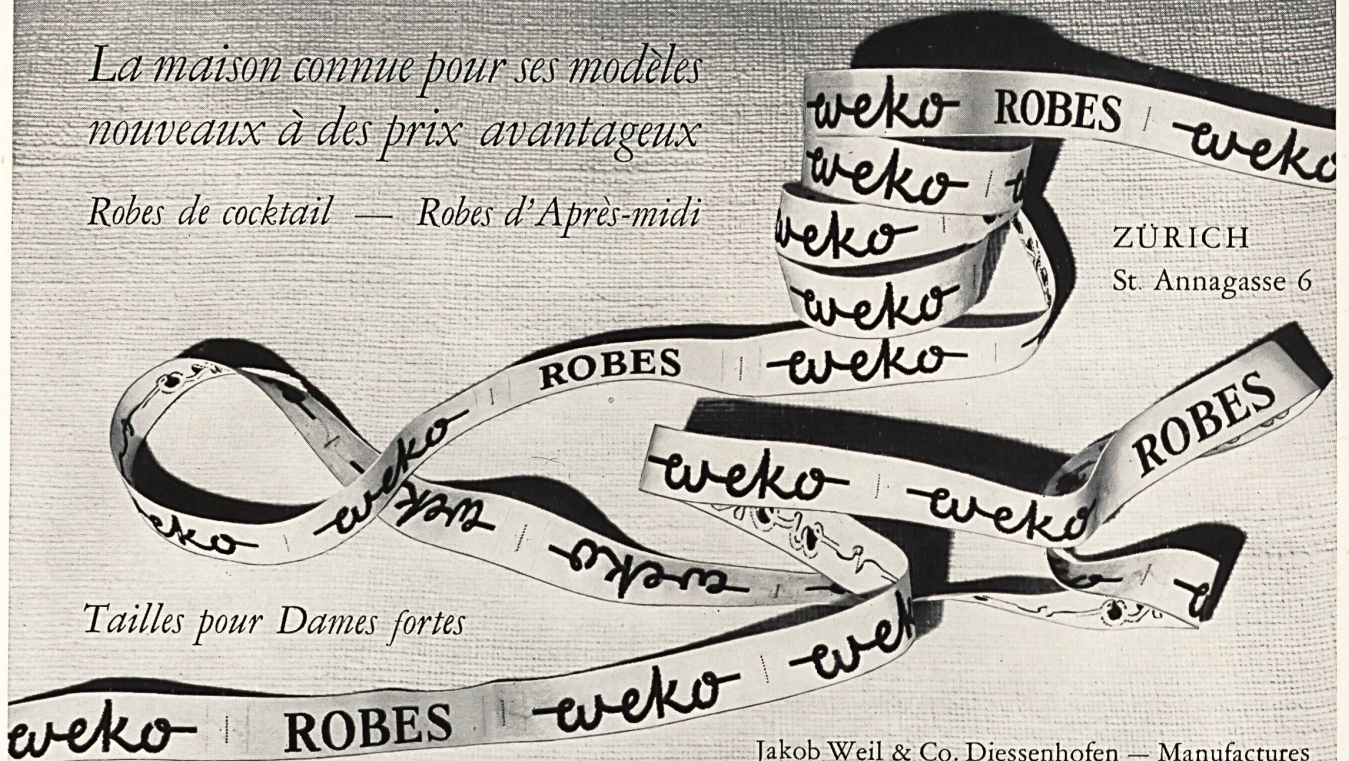 La maison connue pour ses modèles
nouveaux à des prix avantageux
Robes de cocktail — Robes d'Après-midi
weko ROBES weko
weko
weko
weko
ZÜRICH
St. Annagasse 6
ROBES weko
weko
eko
weko
weko
weko weko
ROBES
Tailles pour Dames fortes
weko ROBES weko wek
Jakob Weil & Co. Diessenhofen — Manufactures